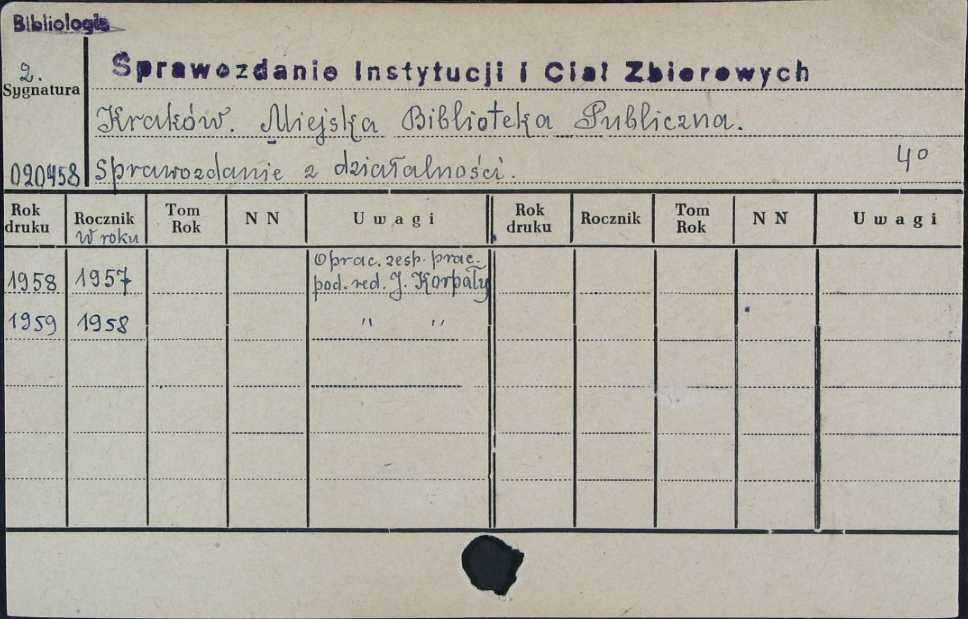 Bibliologia
2.
Sprawozdanie Instytucji i Ciał Zbiorowych
Sygnatura
Kraków. Miejska Biblioteka Publiczna.
020458 Sprawozdanie z działalności. 4°
Rok druku Rocznik W roku Tom Rok N N Uwagi Rok druku Rocznik Tom Rok N N Uwagi
Oprac. zesp. prac.
1958 1957 pod. red. J. Korpały
1959 1958 " "